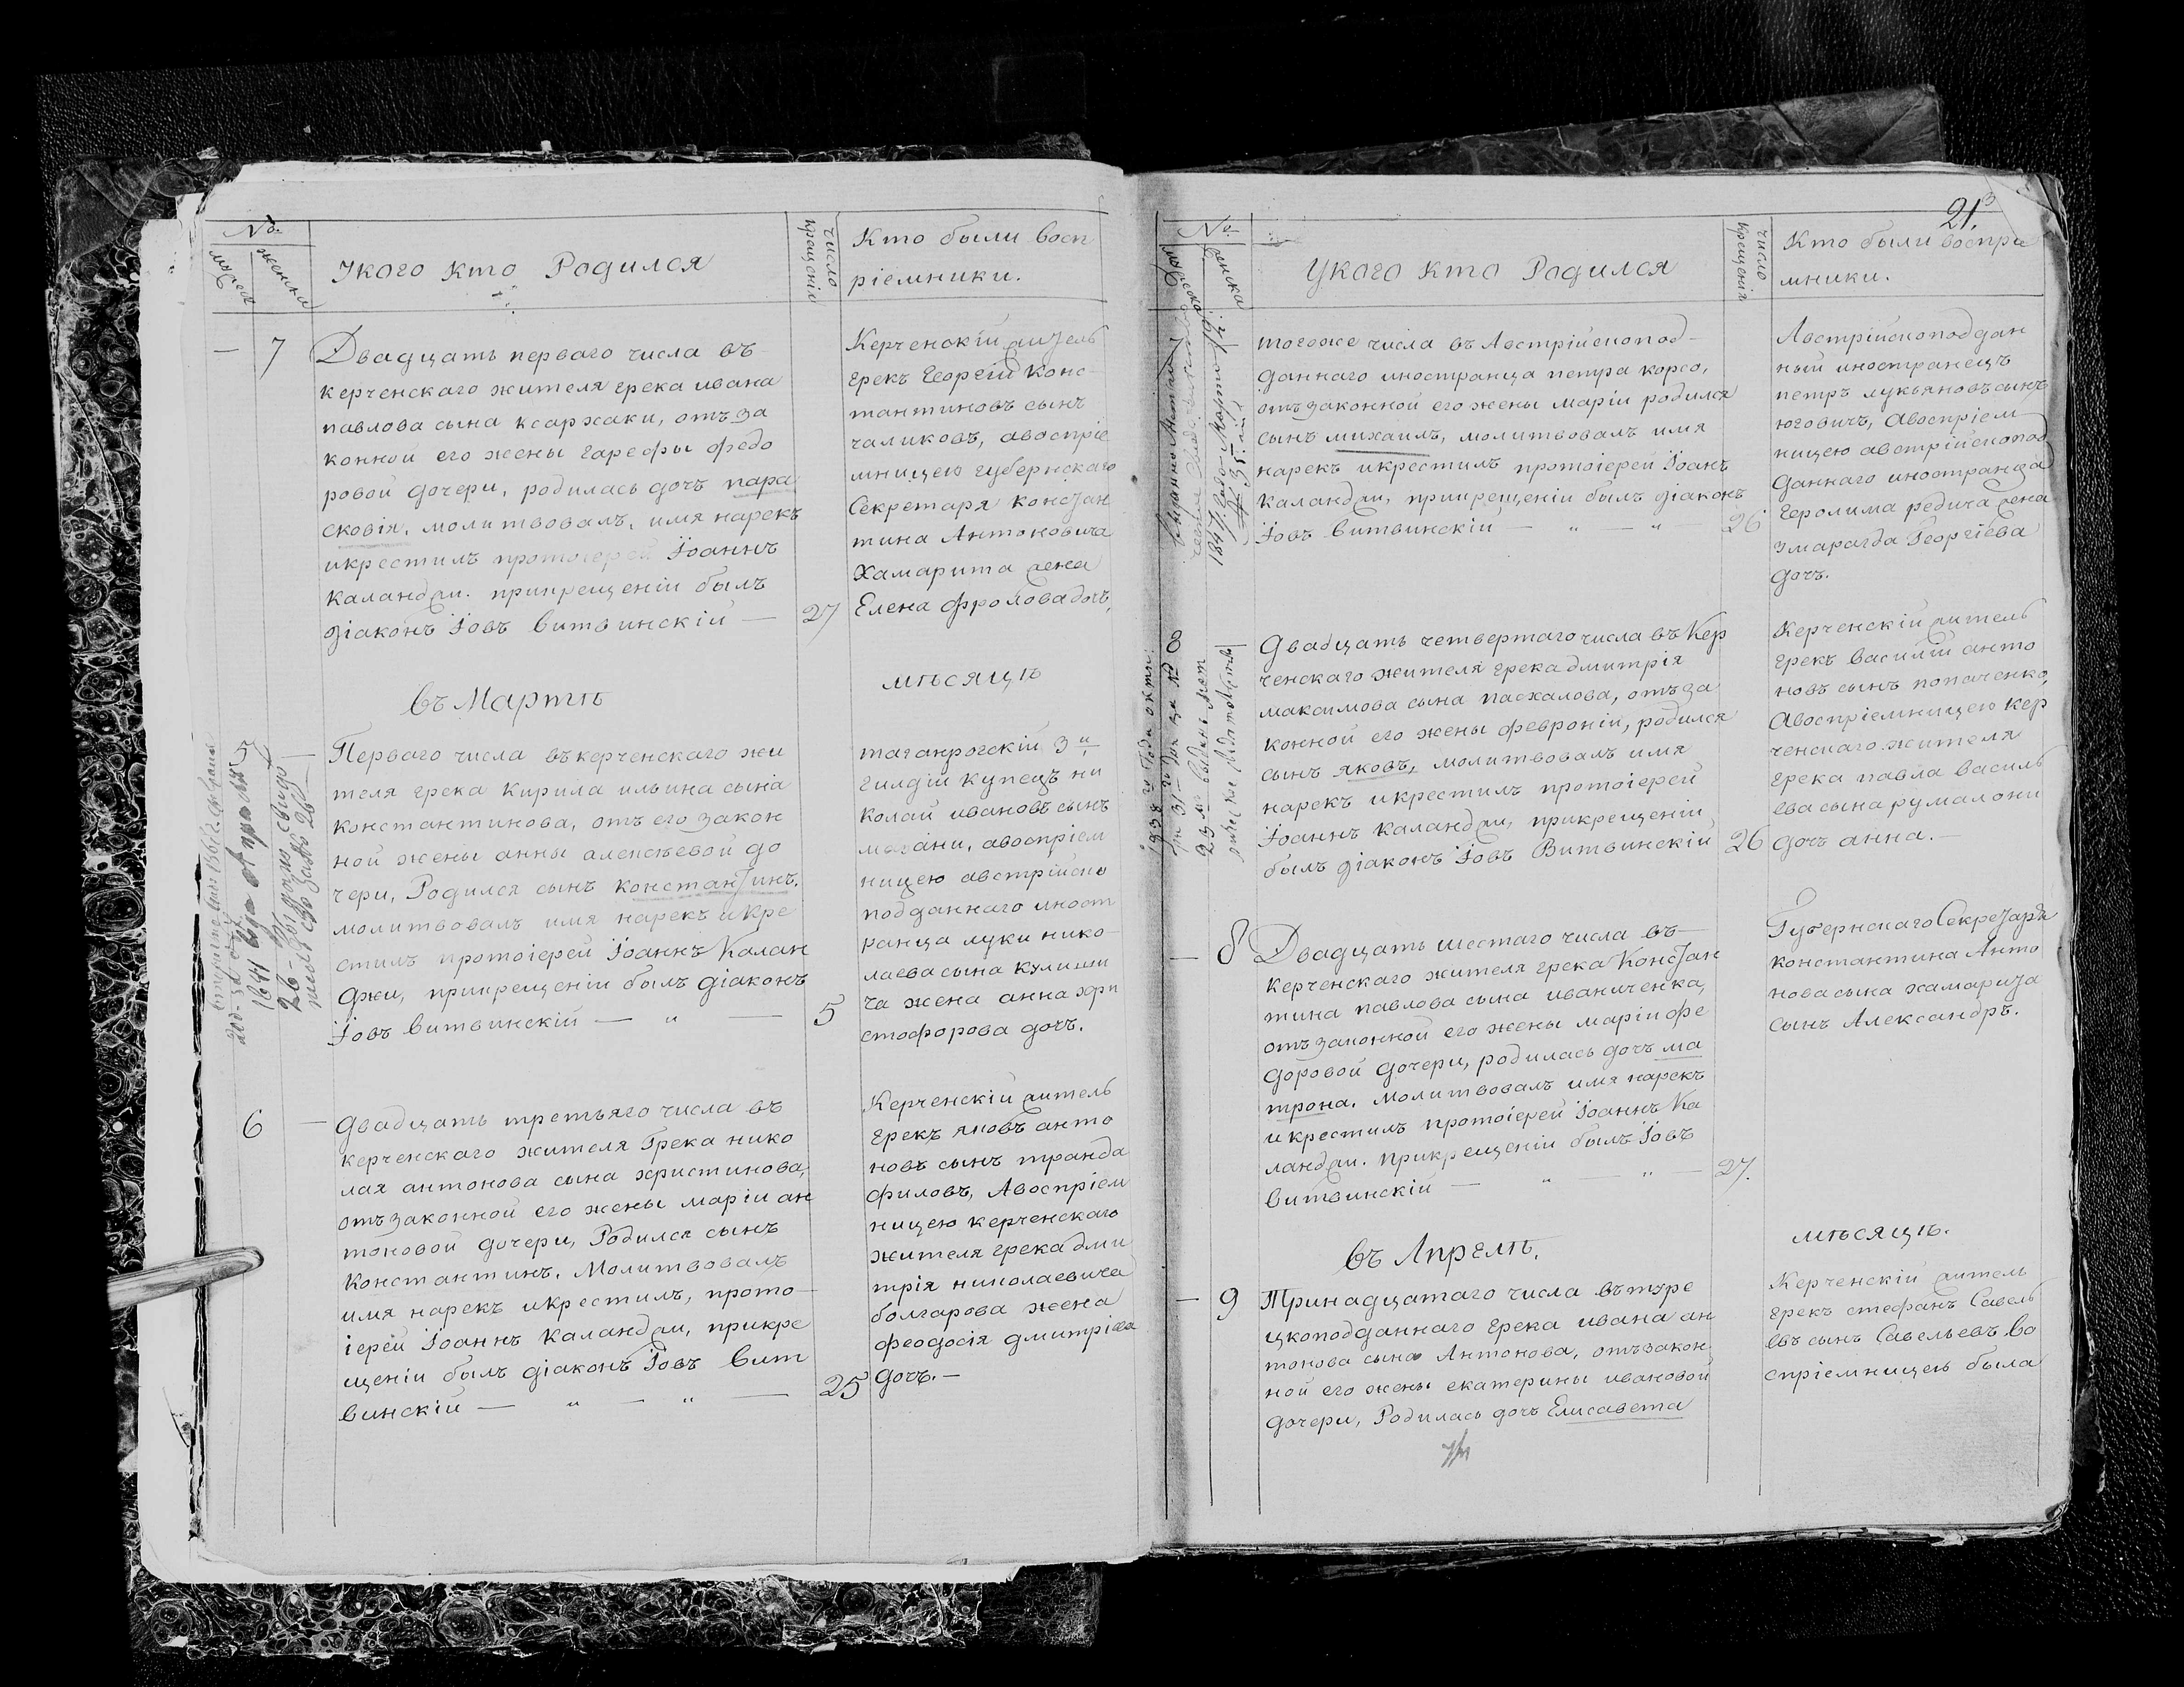 №
мужеск
женски
Укого кто Родился
число крещенія
Кто были восп
ріемники.
— 7
Двадцать перваго числа въ
керченскаго жителя грека ивана
павлова сына ксаржаки, отъ за
конной его жены гарефы федо
ровой дочери, родилась дочъ пара
сковія, молитвовалъ, имя нарекъ
икрестилъ протоіерей Іоаннъ
каланджи. прикрещеніи былъ
діаконъ Іовъ витвинскій —
27
Керченскій житель
грекъ Георгій Конс-
тантиновъ сынъ
чаликовъ, авоспріе
мницею губернскаго
Секретаря констан
тина Антоновича
Хамарита жена
Елена фролова дочъ,
въ Мартѣ
мѣсяцѣ
5 —
Перваго числа въ керченскаго жи
теля грека Кирила ильина сына
константинова, отъ его закон
ной жены анны алексѣевой до
чери, Родился сынъ константинъ.
молитвовалъ имя нарекъ икре
стилъ протоіерей Іоаннъ Калан
джи, прикрещеніи былъ діаконъ
Іовъ витвинскій — „ —
5
таганрогскій 3й
гилдіи купецъ ни
колай ивановъ сынъ
магани, авоспріем
ницею австрійско
подданнаго иност
ранца луки нико-
лаева сына кулиши
ча жена анна хри
стофорова дочъ.
6 —
двадцать третьяго числа въ
керченскаго жителя Грека нико
лая антонова сына христинова,
отъ законной его жены маріи ан
тоновой дочери, Родился сынъ
константинъ. Молитвовалъ
имя нарекъ икрестилъ, прото-
іерей Іоаннъ каланджи, прикре
щеніи былъ діаконъ Іовъ вит
винскій — „ — „ —
25
Керченскій житель
грекъ яковъ анто
новъ сынъ транда
филовъ, Авоспріем
ницею керченскаго
жителя грека дми
трія николаевича
болгарова жена
феодосія дмитріева
дочъ.—
21.
№
женска
Укого кто Родился
число крещенія
Кто были воспріе
мники.
тогоже числа въ Австрійскопод-
даннаго иностранца петра корсо,
отъ законной его жены маріи родился
сынъ михаилъ, молитвовалъ имя
нарекъ икрестилъ протоіерей Іоанъ
каланджи, прикрещеніи былъ діаконъ
Іовъ витвинскій — „ — „
26
Австрійскоподдан
ный иностранецъ
петръ лукьяновъ сынъ
юговичъ, Авоспріем
ницею австрійскопод
даннаго иностранца
Геролима редича жена
змарагда Георгіева
дочъ.
8
Двадцать четвертаго числа въ Кер
ченскаго жителя грека дмитрія
максимова сына пасхалова, отъ за
конной его жены февроніи, родился
сынъ яковъ, молитвовалъ имя
нарекъ икрестилъ протоіерей
Іоаннъ каланджи, прикрещеніи
былъ діаконъ Іовъ Витвинскій
26
Керченскій житель
грекъ василій анто
новъ сынъ попаченко,
Авоспріемницею кер
ченскаго жителя
грека павла василь
ева сына румалони
дочъ анна.—
— 8
Двадцать шестаго числа въ—
керченскаго жителя грека Констан
тина павлова сына иваниченка,
отъ законной его жены маріи фе
доровой дочери, родилась дочъ ма
трона. Молитвовалъ имя нарекъ
икрестилъ протоіерей Іоаннъ Ка
ланджи. прикрещеніи былъ Іовъ
витвинскій — „ — „ —
27.
Губернскаго Секретаря
константина Анто
нова сына хамарита
сынъ Александръ.
въ Апрелѣ,
мѣсяцѣ.
— 9
Тринадцатаго числа въ туре
цкоподданнаго грека ивана ан
тонова сына Антонова, отъ закон
ной его жены екатерины ивановой
дочери, Родилась дочъ Елисавета
Керченскій житель
грекъ стефанъ Савель
евъ сынъ Савельевъ, во
спріемницею была